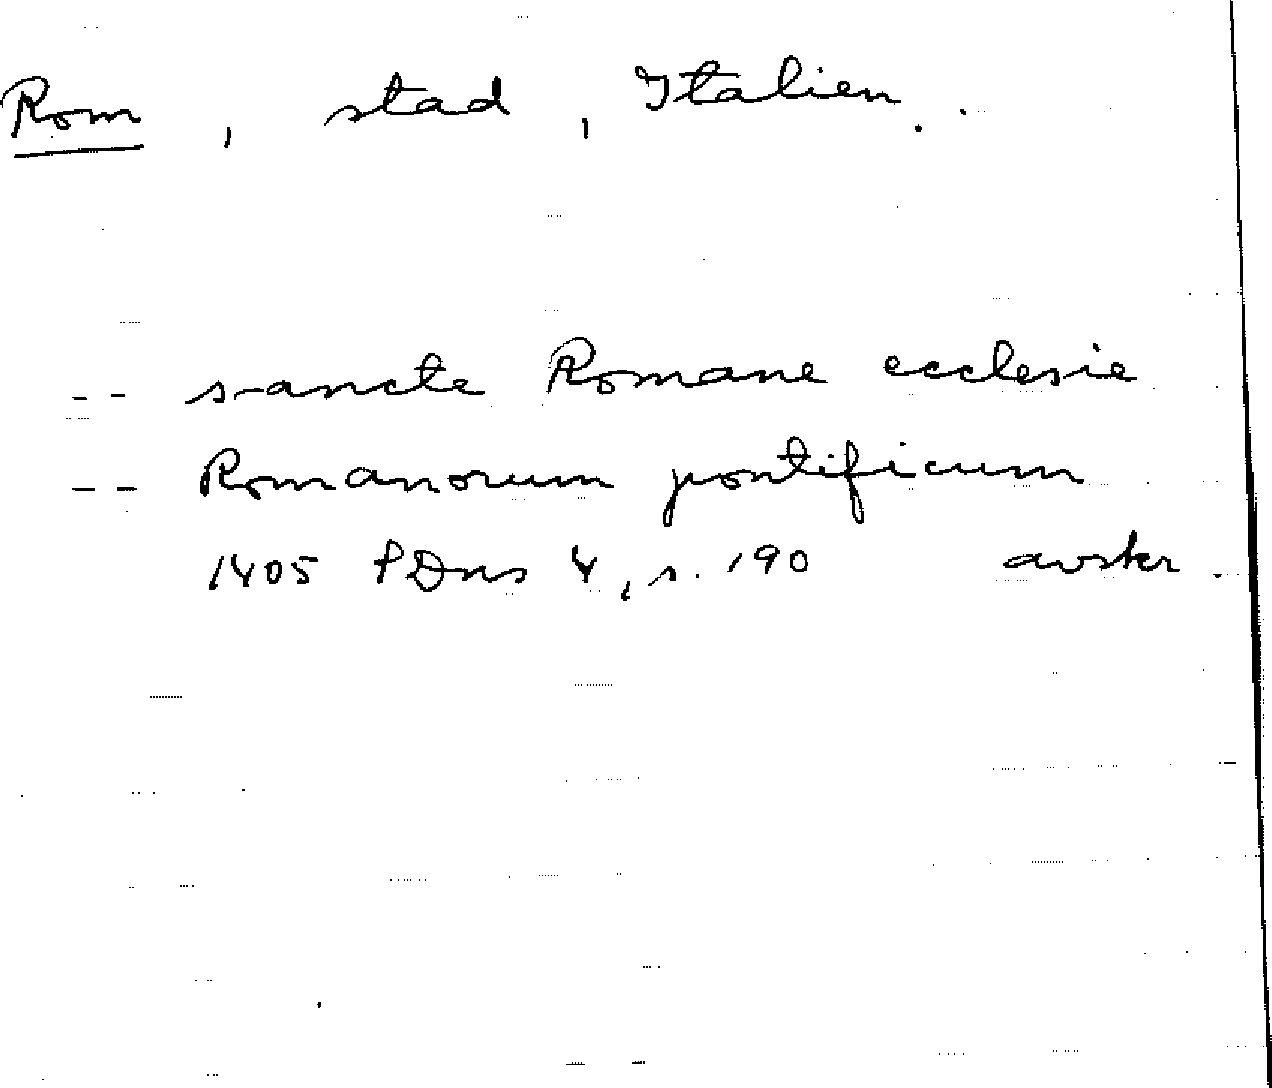 Rom, stad, Italien.
-- sancte Romane ecclesie
-- Romanorum pontificum
1405 PDns 4, s. 190 avskr